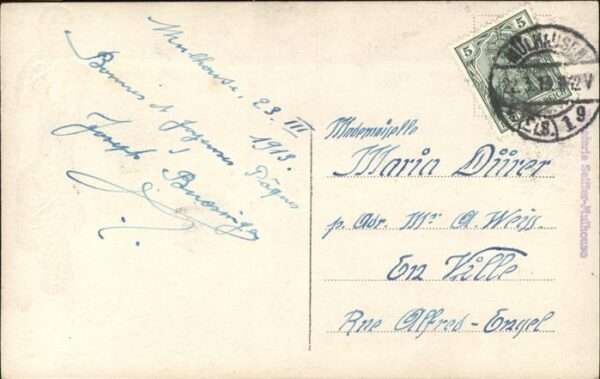 Mulhouse, 23. III 1913.
Bonnes et Joyeuses Pâques
Joseph
5 5
MÜLHAUSEN
(ELS.)
19
Mademoiselle
Maria Dürer
p. Adr. Mr A. Weiss.
En Ville
Rue Alfred-Engel
Seiffer-Mulhouse